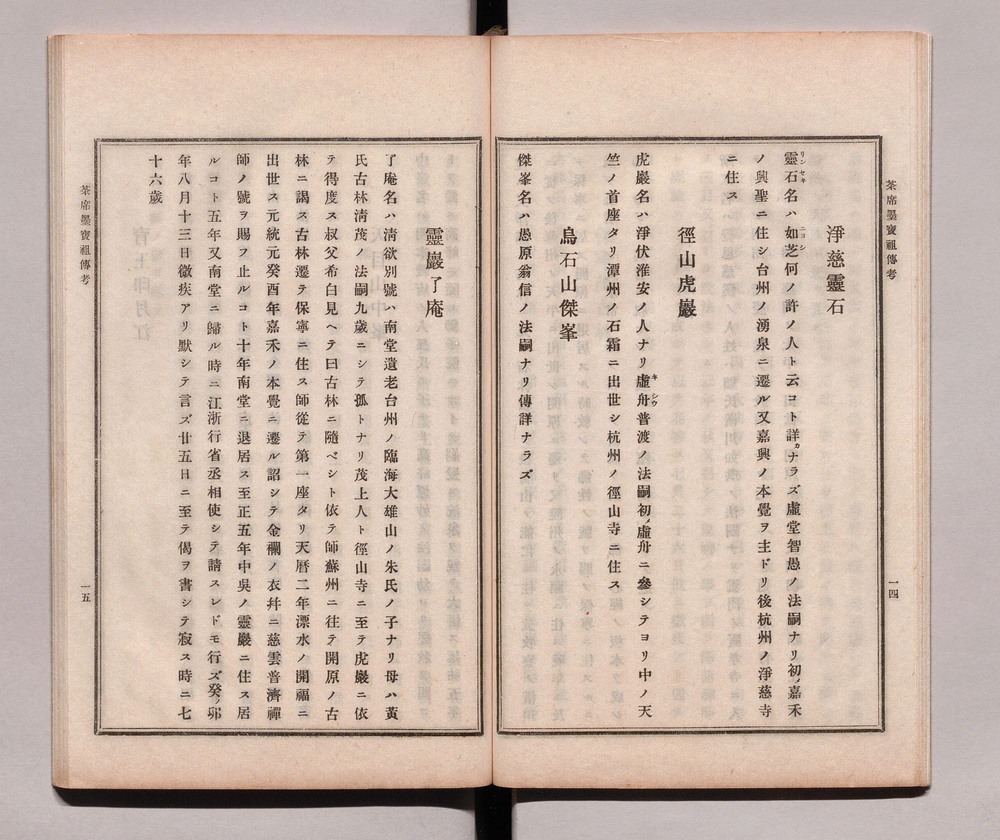 茶席墨寶祖傳考
淨慈靈石
靈石名ハ如芝何ノ許ノ人ト云コト詳カナラズ虛堂智愚ノ法嗣ナリ初メ嘉禾
ノ興聖ニ住シ台州ノ湧泉ニ遷ル又嘉興ノ本覺ヲ主ドリ後杭州ノ淨慈寺
ニ住ス
徑山虎巖
虎巖名ハ淨伏淮安ノ人ナリ虛舟普渡ノ法嗣初メ虛舟ニ參シテヨリ中ノ天
竺ノ首座タリ潭州ノ石霜ニ出世シ杭州ノ徑山寺ニ住ス
烏石山傑峯
傑峯名ハ愚原翁信ノ法嗣ナリ傳詳ナラズ
一四
靈巖了庵
了庵名ハ淸欲別號ハ南堂遺老台州ノ臨海大雄山ノ朱氏ノ子ナリ母ハ黃
氏古林淸茂ノ法嗣九歲ニシテ孤トナリ茂上人ト徑山寺ニ至テ虎巖ニ依
テ得度ス叔父希白見ヘテ曰古林ニ隨ベシト依テ師蘇州ニ往テ開原ノ古
林ニ謁ス古林遷テ保寧ニ住ス師從テ第一座タリ天曆二年漂水ノ開福ニ
出世ス元統元癸酉年嘉禾ノ本覺ニ遷ル詔シテ金襴ノ衣幷ニ慈雲普濟禪
師ノ號ヲ賜フ止ルコト十年南堂ニ退居ス至正五年中吳ノ靈巖ニ住ス居
ルコト五年又南堂ニ歸ル時ニ江浙行省丞相使シテ請スレドモ行ズ癸ノ卯
年八月十三日微疾アリ默シテ言ズ廿五日ニ至テ偈ヲ書シテ寂ス時ニ七
十六歲
茶席墨寶祖傳考
一五